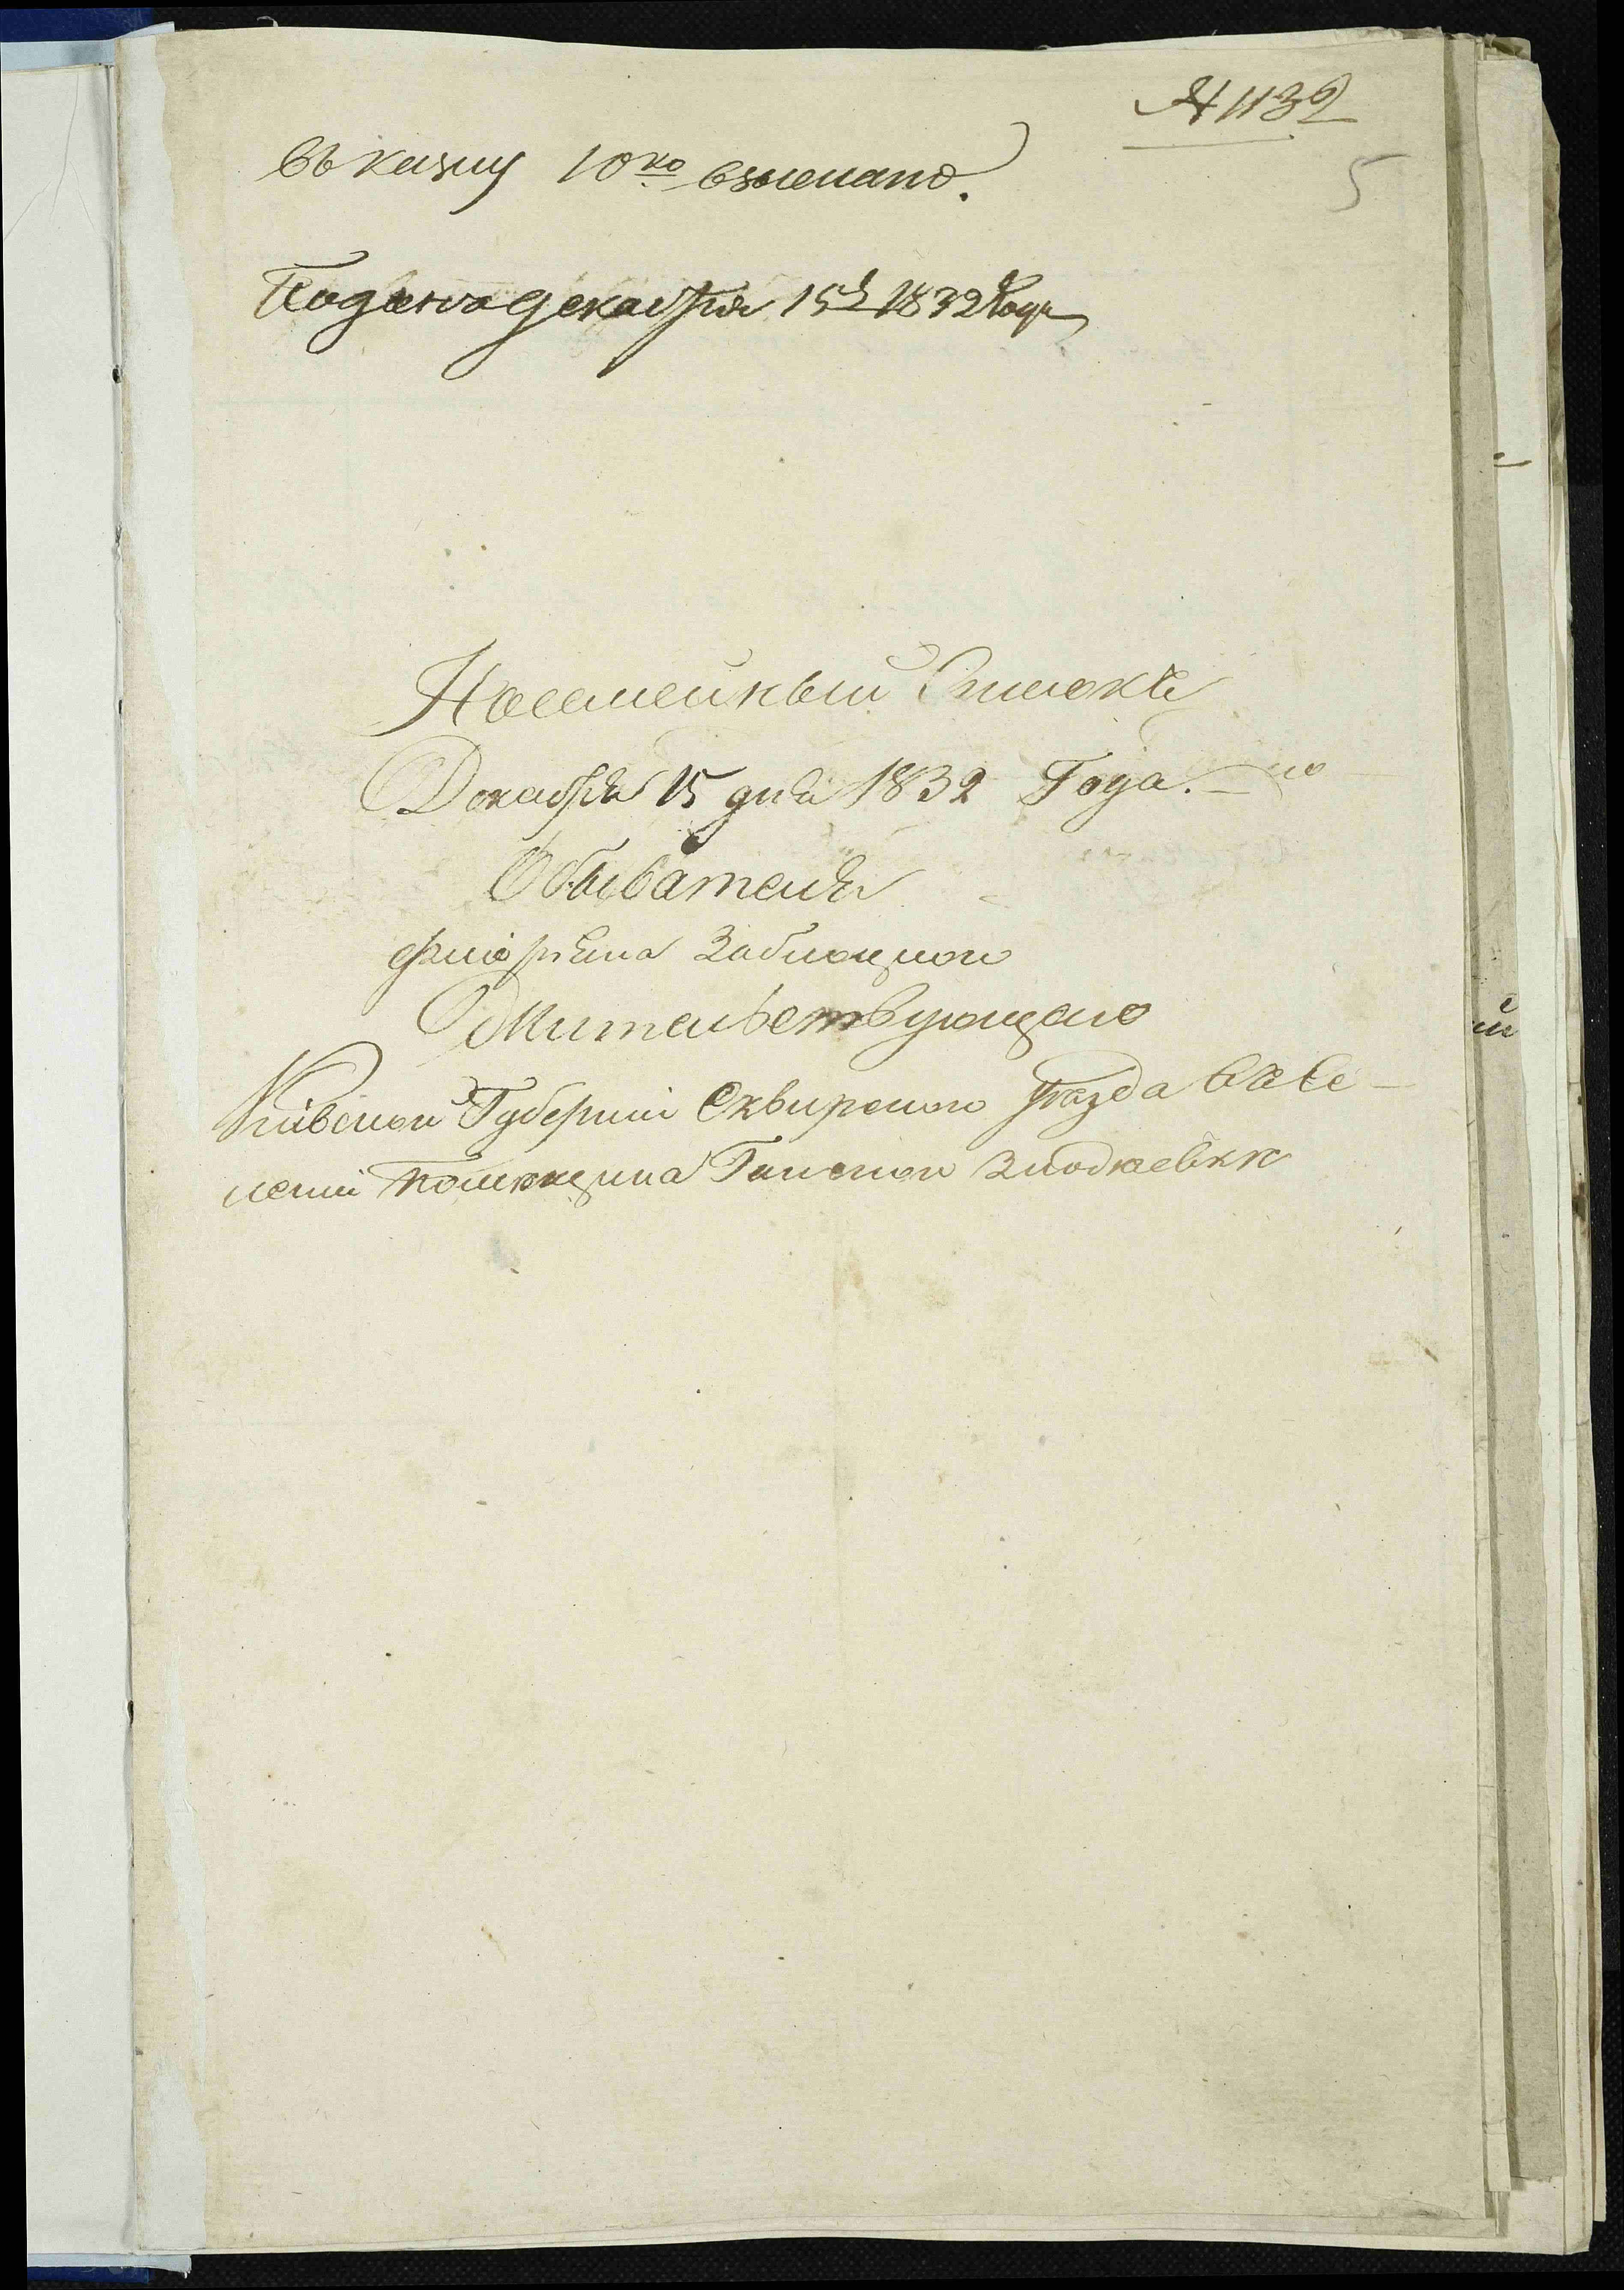 № 1132
5
въ казну 10 ко взыскано.
Подано декабря 15 д 1832 года
Посемейный Список
Декабря 15 дня 1832 Года. —
Обывателя
Флиоріяна Заблоцкого
Жительствующаго
Кіивской Губерніи Сквирского уезда въ Се-
леніи помещика